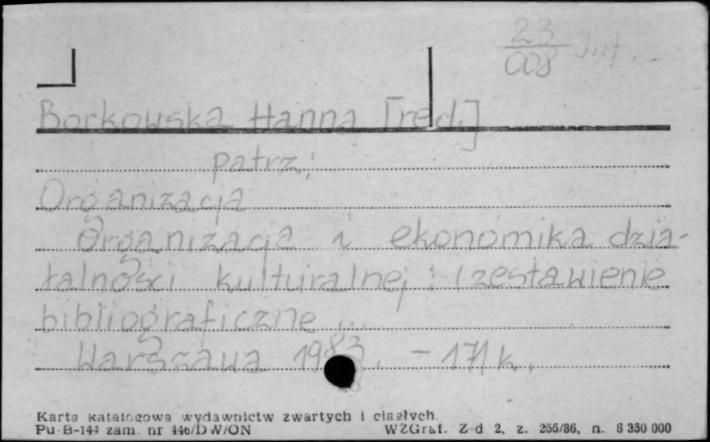 23
008 Inf...
Borkowska Hanna [red.]
patrz:
Organizacja
Organizacja i ekonomika dzia-
łalności kulturalnej : [zestawienie
bibliograficzne ...
Warszawa 1983. - 171 k.
Karta katalogowa wydawnictw zwartych i ciągłych.
Pu-B-144 zam. nr 146/DW/ON WZGraf. Z-d 2, z. 256/86, n. 6 350 000